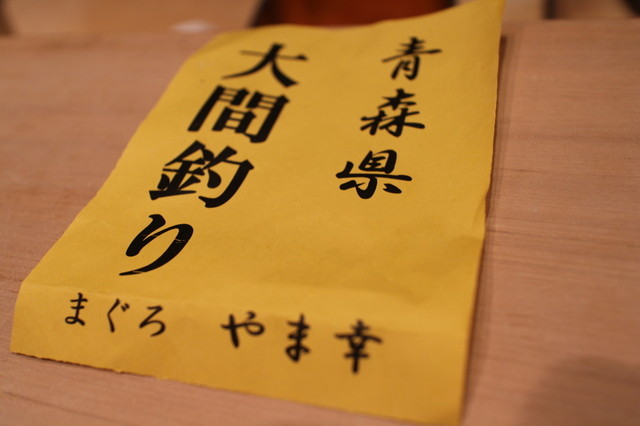 青森県
大間釣り
まぐろ やま幸